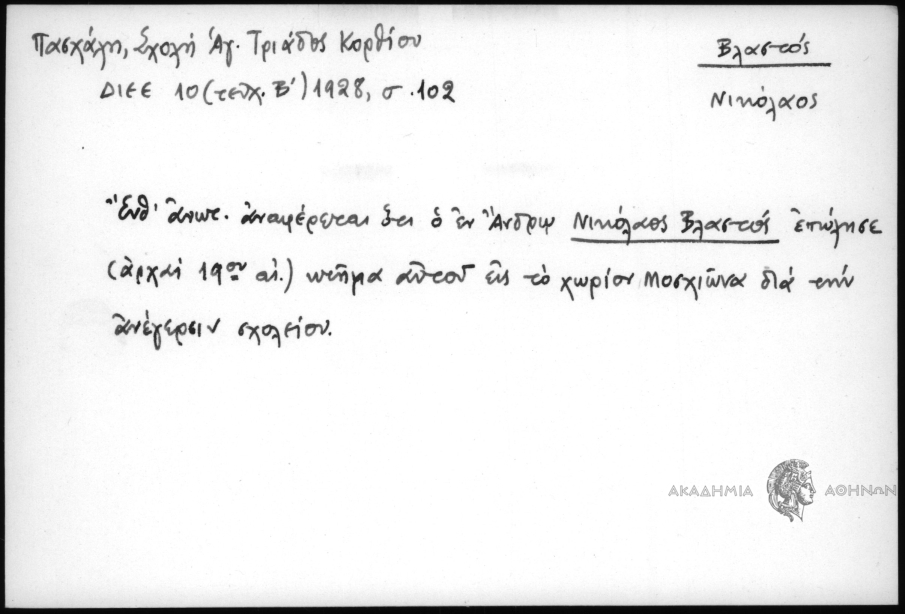 Πασχάλη, Σχολή Ἁγ. Τριάδος Κορθίου
ΔΙΕΕ 10 (τεῦχ. Β΄) 1928, σ. 102
Βλαστός
Νικόλαος
Ἔνθ' ἄνωτ. ἀναφέρεται ὅτι ὁ ἐν Ἄνδρῳ Νικόλαος Βλαστός ἐπώλησε
(ἀρχαί 19ου αἰ.) κτῆμα αὐτοῦ εἰς τὸ χωρίον Μοσχιῶνα διά τήν
ἀνέγερσιν σχολείου.
ΑΚΑΔΗΜΙΑ ΑΘΗΝΩΝ